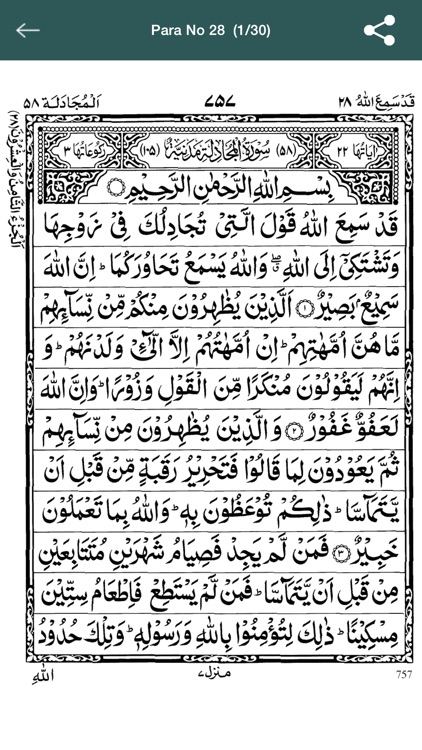 Para No 28 (1/30)
قَدْ سَمِعَ اللّٰهُ ٢٨
٧٥٧
اَلْمُجَادَلَة ٥٨
اٰيَاتُهَا ٢٢
(٥٨) سُوْرَةُ الْمُجَادَلَةِ مَدَنِيَّةٌ (١٠٥)
رُكُوْعَاتُهَا ٣
بِسْمِ اللّٰهِ الرَّحْمٰنِ الرَّحِيْمِ
قَدْ سَمِعَ اللّٰهُ قَوْلَ الَّتِيْ تُجَادِلُكَ فِيْ زَوْجِهَا
وَتَشْتَكِيْٓ اِلَى اللّٰهِ ۖ وَاللّٰهُ يَسْمَعُ تَحَاوُرَكُمَا ؕ اِنَّ اللّٰهَ
سَمِيْعٌۢ بَصِيْرٌ ۝١ اَلَّذِيْنَ يُظٰهِرُوْنَ مِنْكُمْ مِّنْ نِّسَآئِهِمْ
مَّا هُنَّ اُمَّهٰتِهِمْ ؕ اِنْ اُمَّهٰتُهُمْ اِلَّا الّٰٓـِٔيْ وَلَدْنَهُمْ ؕ وَ
اِنَّهُمْ لَيَقُوْلُوْنَ مُنْكَرًا مِّنَ الْقَوْلِ وَزُوْرًا ؕ وَاِنَّ اللّٰهَ
لَعَفُوٌّ غَفُوْرٌ ۝٢ وَالَّذِيْنَ يُظٰهِرُوْنَ مِنْ نِّسَآئِهِمْ
ثُمَّ يَعُوْدُوْنَ لِمَا قَالُوْا فَتَحْرِيْرُ رَقَبَةٍ مِّنْ قَبْلِ اَنْ
يَّتَمَآسَّا ؕ ذٰلِكُمْ تُوْعَظُوْنَ بِهٖ ؕ وَاللّٰهُ بِمَا تَعْمَلُوْنَ
خَبِيْرٌ ۝٣ فَمَنْ لَّمْ يَجِدْ فَصِيَامُ شَهْرَيْنِ مُتَتَابِعَيْنِ
مِنْ قَبْلِ اَنْ يَّتَمَآسَّا ؕ فَمَنْ لَّمْ يَسْتَطِعْ فَاِطْعَامُ سِتِّيْنَ
مِسْكِيْنًا ؕ ذٰلِكَ لِتُؤْمِنُوْا بِاللّٰهِ وَرَسُوْلِهٖ ؕ وَتِلْكَ حُدُوْدُ
اللّٰهِ
منزل ٧
757
اَلْجُزْءُ الثَّامِنُ وَالْعِشْرُوْنَ (٢٨)